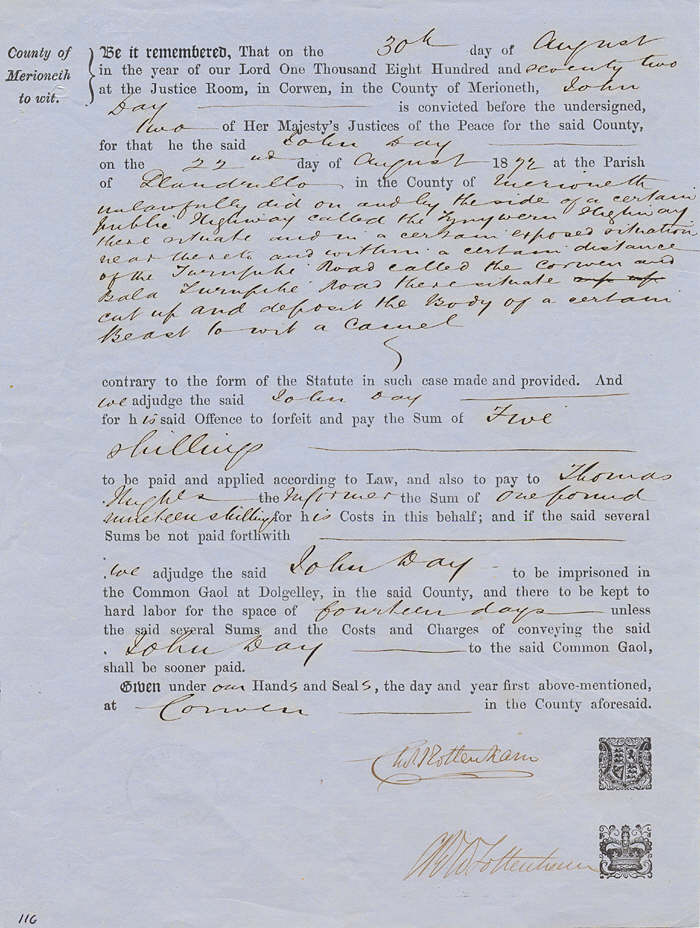 County of
Merioneth
to wit.
Be it remembered, That on the 30th day of August
in the year of our Lord One Thousand Eight Hundred and seventy two
at the Justice Room, in Corwen, in the County of Merioneth, John
Day is convicted before the undersigned,
two of Her Majesty's Justices of the Peace for the said County,
for that he the said John Day
on the 22nd day of August 1872 at the Parish
of Llandrillo in the County of Merioneth
unlawfully did on and by the side of a certain
public Highway called the Tynywern Highway
there situate and in a certain exposed situation
near thereto and within a certain distance
of the Turnpike Road called the Corwen and
Bala Turnpike Road there situate
cut up and deposit the Body of a certain
Beast to wit a Camel
contrary to the form of the Statute in such case made and provided. And
we adjudge the said John Day
for his said Offence to forfeit and pay the Sum of Five
shillings
to be paid and applied according to Law, and also to pay to Thomas
Hughes the Informer the Sum of One pound
nineteen shillings for his Costs in this behalf; and if the said several
Sums be not paid forthwith
we adjudge the said John Day to be imprisoned in
the Common Gaol at Dolgelley, in the said County, and there to be kept to
hard labor for the space of fourteen days unless
the said several Sums and the Costs and Charges of conveying the said
John Day to the said Common Gaol,
shall be sooner paid.
Given under our Hands and Seals, the day and year first above-mentioned,
at Corwen in the County aforesaid.
Tottenham
Tottenham
116